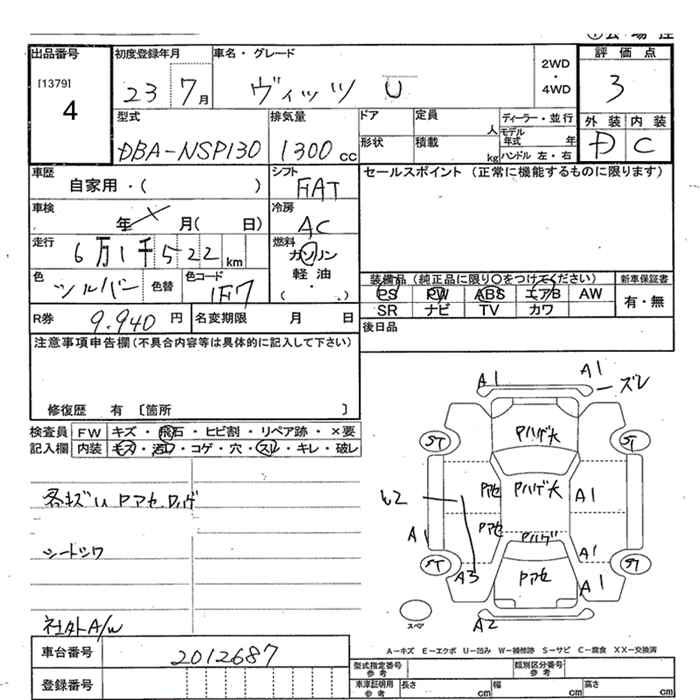 出品番号 初度登録年月 車名・グレード 評価点
[1379]
4 23 7月 ヴィッツ U 2WD・4WD 3
型式 排気量 ドア 定員 人 ディーラー・並行 外装 内装
DBA-NSP130 1300cc 形状 積載 kg モデル年式 年 D C
ハンドル 左・右
車歴 シフト セールスポイント (正常に機能するものに限ります)
自家用・( ) FAT
車検 冷房
年 月( 日) AC
走行 燃料
6万1千522km ガソリン
軽油
( ・ )
色 色替 色コード 装備品 (純正品に限り○をつけてください) 新車保証書
シルバー 1F7 PS PW ABS エアB AW 有・無
R券 9.940円 名変期限 月 日 SR ナビ TV カワ
後日品
注意事項申告欄(不具合内容等は具体的に記入して下さい)
修復歴 有 [箇所 ]
検査員 FW キズ・飛石・ヒビ割・リペア跡・×要
記入欄 内装 キズ・汚れ・コゲ・穴・スレ・キレ・破レ
各キズU Pアセ Pハゲ
シートシワ
社外A/W
車台番号 2012687
登録番号
A1 A1 ズレ
ST ST
Pハゲ大
Pアセ Pハゲ大 A1
Pアセ Pハゲ
A1 A1
ST ST
A3 Pアセ A1
スペア A2
A-キズ E-エクボ U-凹み W-補修跡 S-サビ C-腐食 XX-交換済
型式指定番号 参考 類別区分番号 参考
車庫証明用 参考 長さ cm 幅 cm 高さ cm